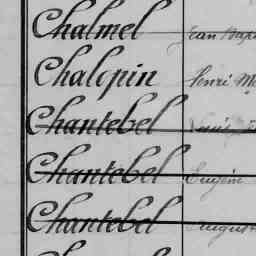 Chalmel Jean Bap
Chalopin Henri M
Chantebel Louis
Chantebel Eugène
Chantebel August